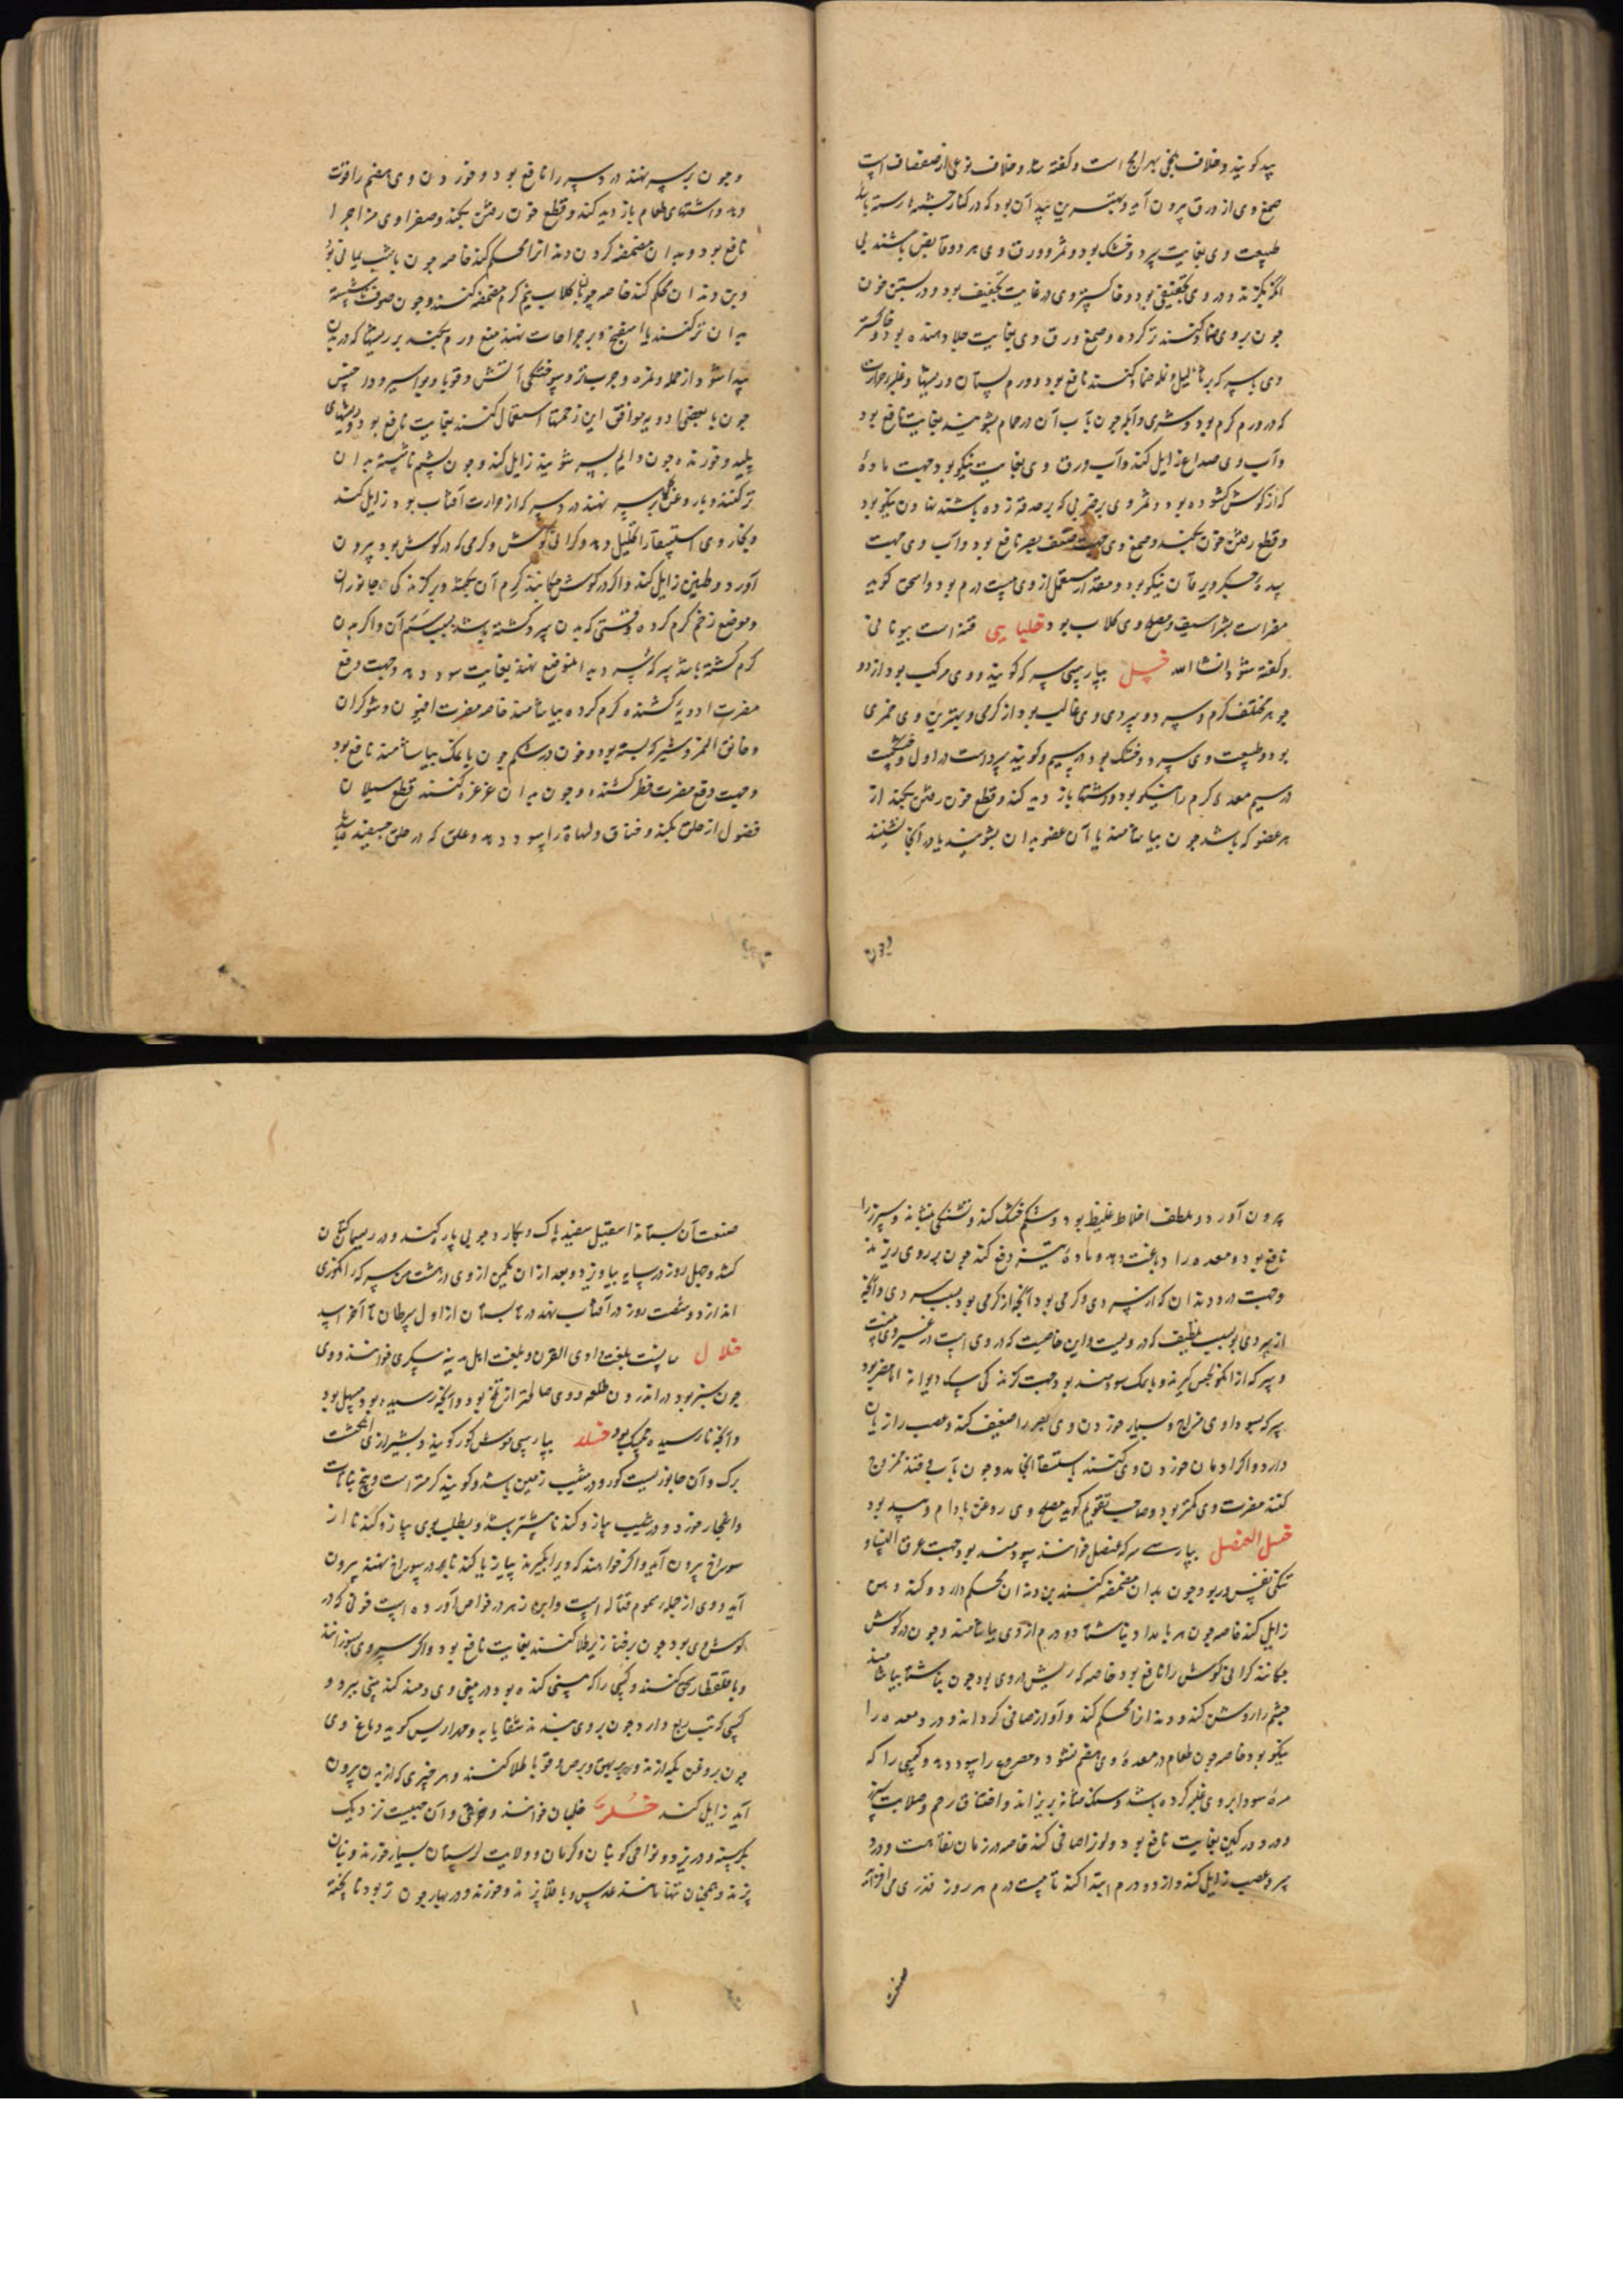 بید گویند و خلاف بلخی بهرامج است و گفته شد و خلاف نوعی از صفصاف است
صمغ وی از ورق بیرون آید و بهترین بید آن بود که در کنار چشمها رسته باشد
طبیعت وی بغایت سرد و خشک بود و ثمر و ورق وی هر دو قابض باشند بی
بود و در بستن خون
چون بر وی ضماد کنند تر کرده و صمغ ورق وی بغایت جلا دهنده بود و خاکستر
وی با سرکه بر ثالیل و نمله ضماد کنند نافع بود و ورم پستان و ریشها
که در ورم گرم بود چون بآب آن در حمام بشویند بغایت نافع بود
و آب وی صداع زایل کند و آب ورق وی بغایت نیکو بود جهت مادهٔ
که از گوش گشوده بود و ثمر وی بر ضربی که بر حدقه زده باشند نهادن نیکو بود
و قطع رفتن خون بکند و صمغ وی جهت ضعف بصر نافع بود و آب وی جهت
سدهٔ جگر و یرقان نیکو بود و مقدار مستعمل از وی بیست درم بود و اسحق گوید
مضر است بشراسیف و مصلح وی گلاب بود خلیایی قنه است بیونانی
و گفته شود انشا الله خل بپارسی سرکه گویند و وی مرکب بود از دو
جوهر مختلف گرم و سرد و سردی وی غالب بود از گرمی و بهترین وی خمری
بود و طبیعت وی سرد و خشک بود در سیم و گویند سرد است در اول و خشکست
در سیم معدهٔ گرم را نیکو بود و اشتها باز دید کند و قطع خون رفتن بکند از
هر عضو که باشد چون بیاشامند یا آن عضو بدان بشویند یا در آنجا نشینند
و چون بر سر نهند درد سر را نافع بود و خوردن وی هضم را قوت
دهد و اشتهای طعام باز دید کند و قطع خون رفتن بکند و صفراوی مزاج را
نافع بود و بدان مضمضه کردن دندانرا محکم کند خاصه چون با شب یمانی بود
و بن دندان محکم کند خاصه چون با گلاب نیم گرم مضمضه کنند و چون صوف ناشسته
بدان تر کنند یا اسفنج و بر جراحات نهند منع ورم بکند بر ریشها که در بدن
پیدا شود از حمله و غره و جرب تر و سوختگی آتش و قوبا و بواسیر و داحس
چون با بعضی ادویه موافق این زحمتها استعمال کنند بغایت نافع بود و ریشهای
پلید و خورنده چون دایم بسر که شویند زایل کند و چون پشم ناشسته بدان
تر کنند و با روغن گل بر سر نهند درد سر که از حرارت آفتاب بود زایل کند
و بخار وی استسقا را تحلیل دهد و گرانی گوش و کرمی که در گوش بود بیرون
آورد و طنین زایل کند و اگر در گوش چکانند کرم آن بکشد و بر گزندگی جانوران
و موضع زخم گرم کرده وقتی که بدن سرد گشته باشد بسبب سم آن و اگر بدن
گرم گشته باشد سرکه سرد بدان موضع نهند بغایت سود دهد و جهت دفع
مضرت ادویهٔ کشنده گرم کرده بیاشامند خاصه مضرت افیون و شوکران
و خانق النمر و شیر که بسته بود و خون در شکم چون با نمک بیاشامند نافع بود
و جهت دفع مضرت فطر کشنده و چون بدان غرغره کنند قطع سیلان
فضول از حلق بکند و خناق و لهاة را سود دهد و علق که در حلق چسفیده باشد
بیرون آورد و ملطف اخلاط غلیظ بود و شکم خشک کند و تشنگی بنشاند و سپرز را
نافع بود و معده را دباغت دهد و مادهٔ تیز دفع کند چون بر روی ریزند
و جهت درد دندان که از سردی و گرمی بود آنچه از گرمی بود بسبب سردی و آنچه
از سردی بود بسبب تلطیف که در ویست و این خاصیت که در وی است در غیر وی نیست
و سرکه از انگور مجلس گیرند و با نمک سودمند بود جهت گزندگی سگ دیوانه اما مضر بود
سرکه بسوداوی مزاج و بسیار خوردن وی بصر را ضعیف کند و عصب را زیان
دارد و اگر ادمان خوردن وی کنند باستسقا انجامد و چون بآب و قند ممزوج
کنند مضرت وی کمتر بود و صاحب تقویم گوید مصلح وی روغن بادام و سپید بود
خل العنصل بپارسی سرکه عنصل خوانند سودمند بود جهت عرق النسا و
تنگی نفس و ربو و چون بدان مضمضه کنند بن دندان محکم دارد و گند دهن
زایل کند خاصه چون هر بامداد بناشتا دو درم از وی بیاشامند و چون در گوش
چکانند گرانی گوش را نافع بود خاصه که ریش در وی بود چون بناشتا بیاشامند
چشم را روشن کند و دندانرا محکم کند و آواز صافی گرداند و درد معده را
نیکو بود خاصه چون طعام در معدهٔ وی هضم نشود و مصروع را سود دهد و کسی را که
مرهٔ سودا بر وی غلبه کرده باشد و سنگ مثانه بریزاند و اختناق رحم و صلابت سپرز
و درد ورکین بغایت نافع بود و لون صافی کند خاصه در زمان نقاهت و درد
سر و عصب زایل کند و از دو درم ابتدا کند تا بیست درم هر روز قدری می افزاید
صنعت
صنعت آن بستاند اسقیل سفید پاک و بکارد چوبی پاره کنند و در ریسمان کتان
کشد و چهل روز در سایه بیاویزد و بعد از آن یکمن از وی در هشت من سرکه انگوری
اندازد و شصت روز در آفتاب نهد در تابستان از اول سرطان تا آخر اسد
خلال بلغت وادی القری و بلغت اهل مدینه خوانند و وی
چون سبز بود در اندرون طلعه و وی صالحتر از بلخ بود و آنچه رسیده بود مسهل بود
و آنچه نارسیده ممسک بود خلد بپارسی موش کور گویند و بشیرازی انگشت
برک و آن جانوریست کور و در شیب زمین باشد و گویند کرمتر است و بیخ نباتات
و اشجار خورد و در شیب پیاز و گندنا بیشتر باشد و بطلب بوی پیاز و گندنا از
سوراخ بیرون آید و اگر خواهند که ویرا بگیرند پیاز یا گندنا بر در سوراخ نهند بیرون
آید و وی از جمله سموم قتاله است و ابن زهر در خواص آورده است خونی که در
گوش وی بود چون بر خنازیر طلا کنند بغایت نافع بود و اگر سر وی بسوزانند
و با قلقطار سحق کنند و کسی را که بینی گنده بود در بینی وی دمند گند بینی ببرد و
کسی که تب ربع دارد چون بر وی بندند شفا یابد و مهراریس گوید دماغ وی
چون بروغن بگدازند و بر بهق و برص و قوبا طلا کنند و هر چیزی که از بدن بیرون
آید زایل کند خلر جلبان خوانند و آن حبیست نزدیک
بکرسنه و در یزد و نواحی کوبنان و کرمان و ولایت لرستان بسیار خورند و بنان
پزند و همچنان تنها مانند عدس و باقلا پزند و خورند و در بهار چون تر بود ناپخته